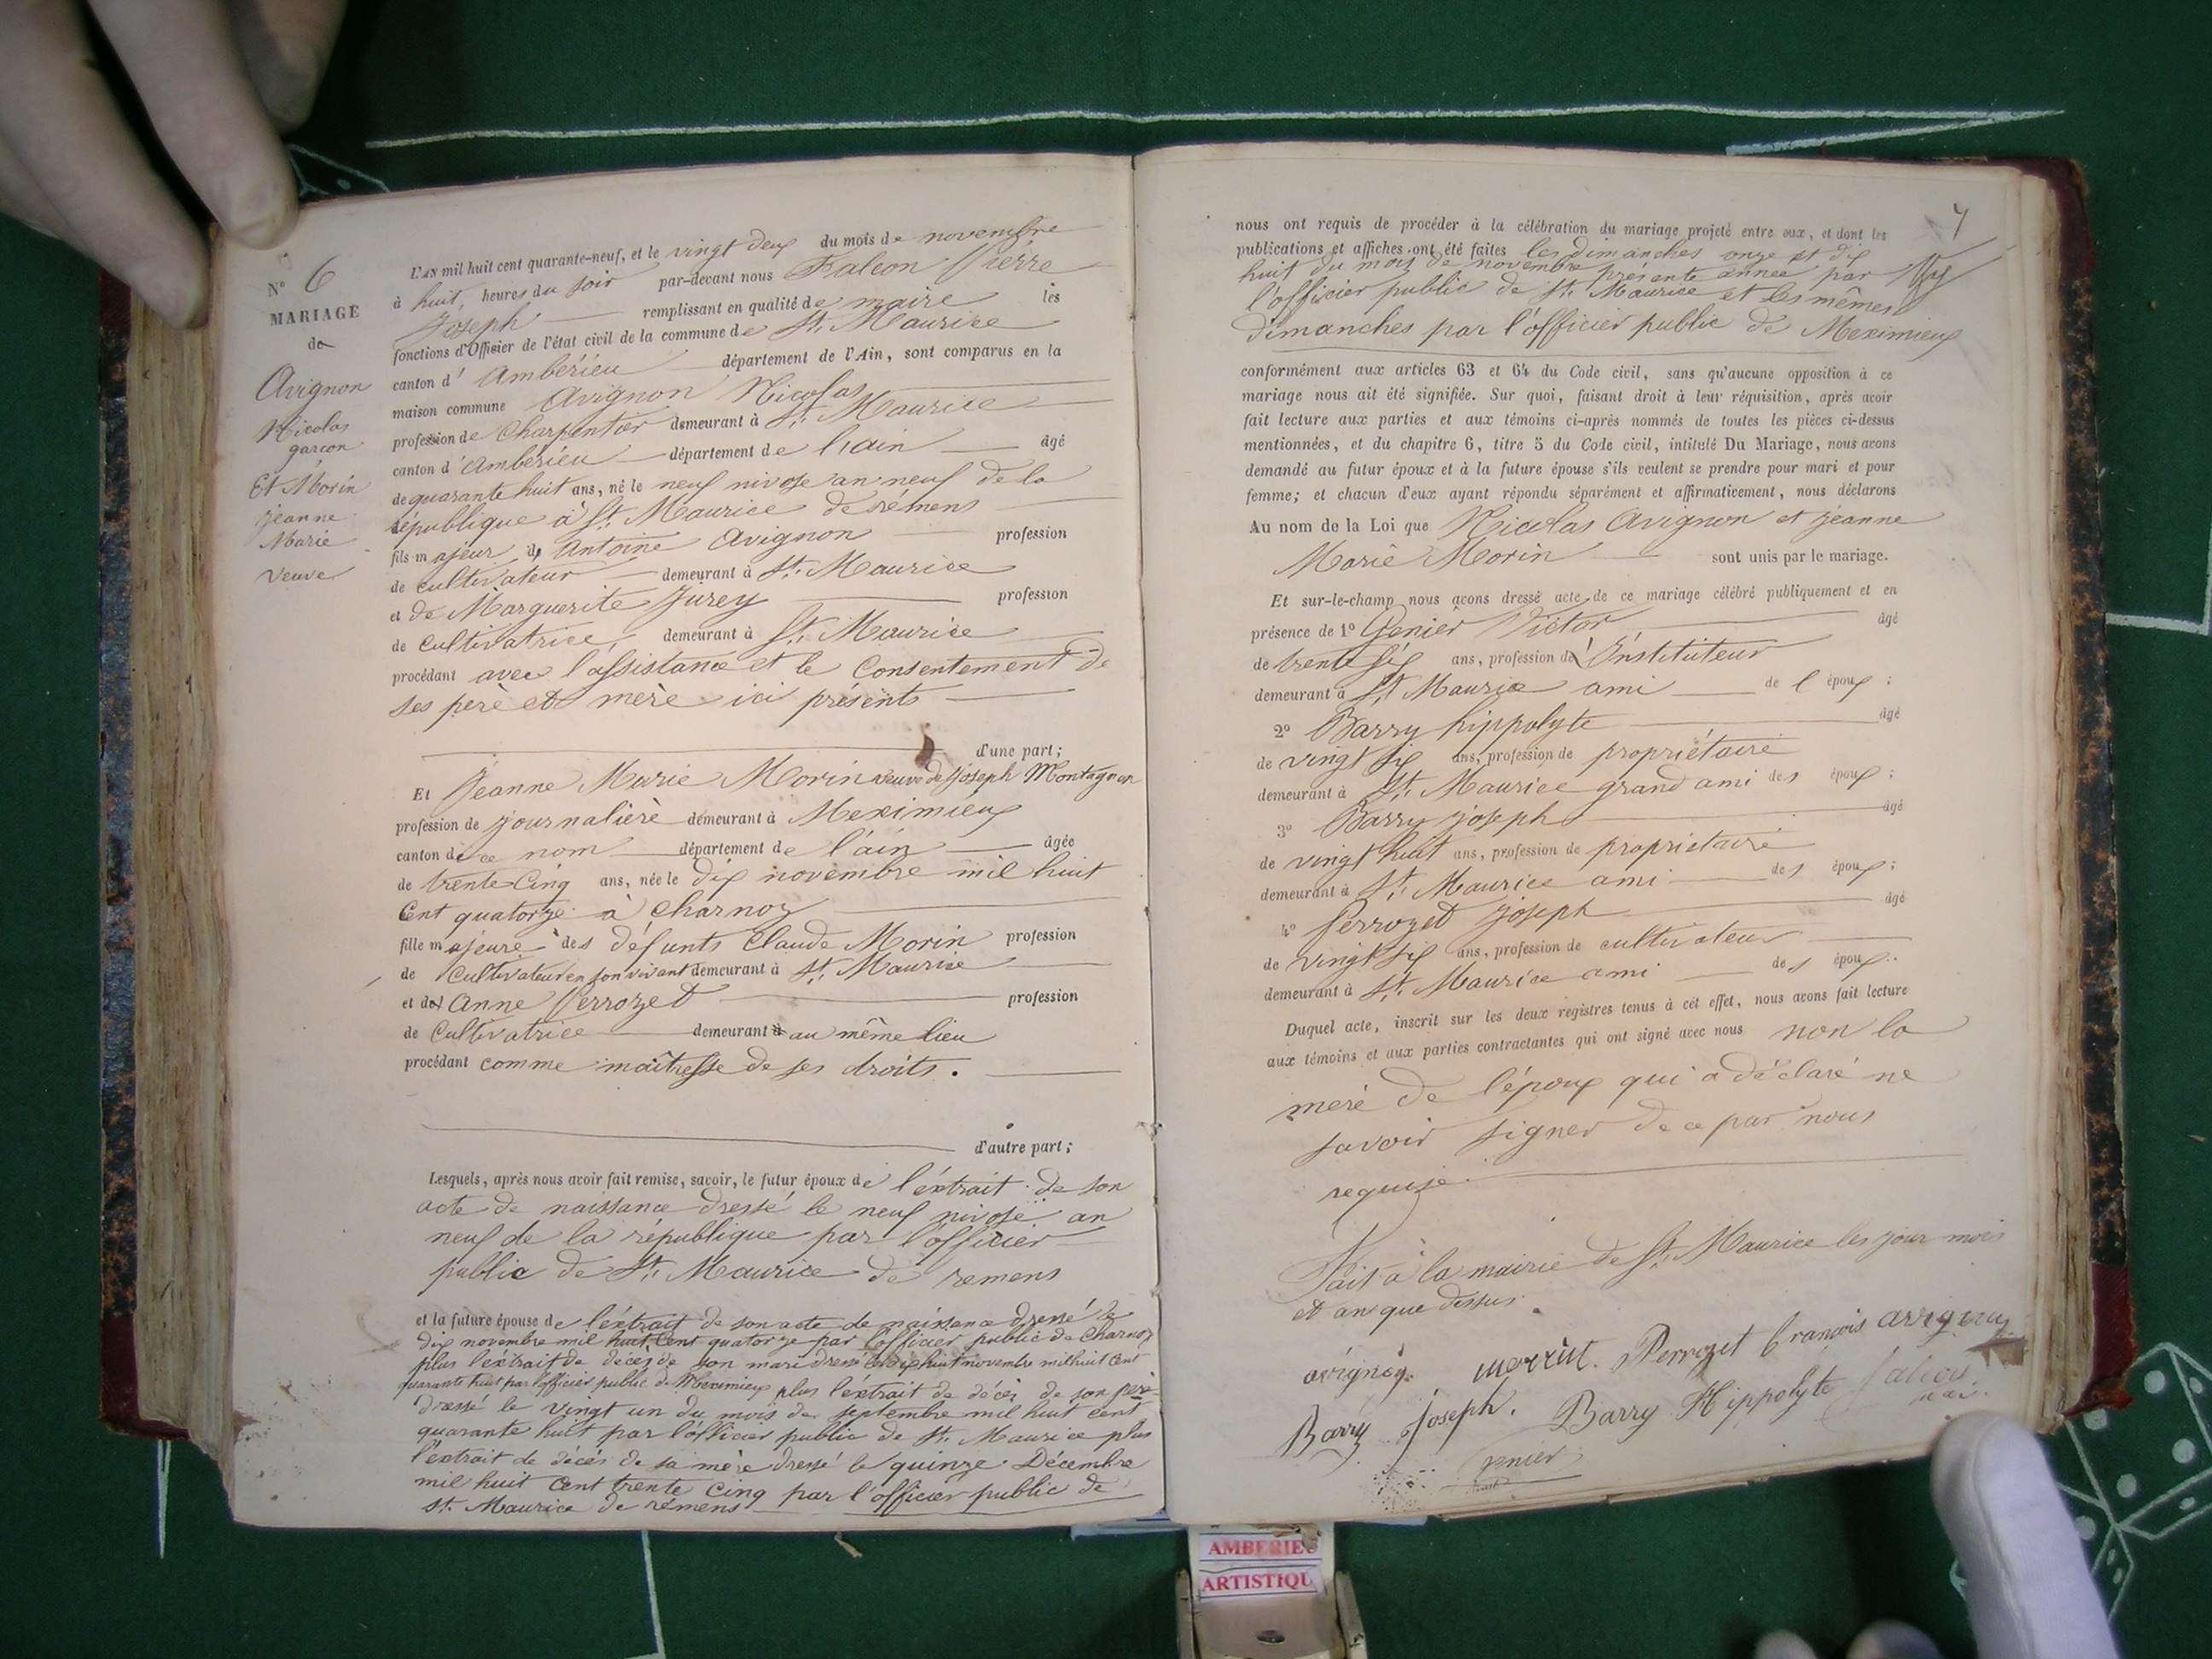 N° 6
MARIAGE
de
Avignon
Nicolas
garcon
Et Morin
jeanne
Marie
veuve
L'AN mil huit cent quarante-neuf, et le vingt deux du mois de novembre
à huit, heures du soir par-devant nous Falcon Pierre
Joseph remplissant en qualité de maire les
fonctions d'Officier de l'état civil de la commune de St. Maurice
canton d' Ambérieu département de l'Ain, sont comparus en la
maison commune Avignon Nicolas
profession de Charpentier demeurant à St. Maurice
canton d'Ambérieu département de l'ain âgé
de quarante huit ans, né le neuf nivose an neuf de la
république à St. Maurice de rémens
fils majeur de Antoine Avignon profession
de cultivateur demeurant à St. Maurice
et de Marguerite Jurey profession
de cultivatrice, demeurant à St. Maurice
procédant avec l'assistance et le Consentement de
ses père et mère ici présents
d'une part;
Et Jeanne Marie Morin veuve de Joseph Montagnon
profession de journalière demeurant à Meximieux
canton de ce nom département de l'ain âgée
de trente Cinq ans, née le dix novembre mil huit
Cent quatorze à Charnoz
fille majeure des défunts Claude Morin profession
de Cultivateur en son vivant demeurant à St. Maurice
et de Anne Perrozet profession
de Cultivatrice demeurant à au même lieu
procédant comme maîtresse de ses droits.
d'autre part;
Lesquels, après nous avoir fait remise, savoir, le futur époux de l'extrait de son
acte de naissance dressé le neuf nivose an
neuf de la république par l'officier
public de St. Maurice de remens
et la future épouse de l'extrait de son acte de naissance dressé le
dix novembre mil huit Cent quatorze par l'officier public de Charnoz
plus l'extrait de décès de son mari dressé le dix huit novembre mil huit Cent
quarante huit par l'officier public de Meximieux plus l'extrait de décès de son père
dressé le vingt un du mois de septembre mil huit cent
quarante huit par l'officier public de St. Maurice plus
l'extrait de décès de sa mère dressé le quinze Décembre
mil huit Cent trente Cinq par l'officier public de
St. Maurice de rémens
7
nous ont requis de procéder à la célébration du mariage projeté entre eux, et dont les
publications et affiches ont été faites les dimanches onze et dix
huit du mois de novembre présente année par
l'officier public de St. Maurice et les mêmes
dimanches par l'officier public de Meximieux
conformément aux articles 63 et 64 du Code civil, sans qu'aucune opposition à ce
mariage nous ait été signifiée. Sur quoi, faisant droit à leur réquisition, après avoir
fait lecture aux parties et aux témoins ci-après nommés de toutes les pièces ci-dessus
mentionnées, et du chapitre 6, titre 5 du Code civil, intitulé Du Mariage, nous avons
demandé au futur époux et à la future épouse s'ils veulent se prendre pour mari et pour
femme; et chacun d'eux ayant répondu séparément et affirmativement, nous déclarons
Au nom de la Loi que Nicolas Avignon et jeanne
Marie Morin sont unis par le mariage.
Et sur-le-champ nous avons dressé acte de ce mariage célébré publiquement et en
présence de 1° Genier Victor âgé
de trente six ans, profession de Instituteur
demeurant à St Maurice ami de l époux :
2° Barry hippolyte âgé
de vingt six ans, profession de propriétaire
demeurant à St. Maurice grand ami des époux :
3° Barry joseph âgé
de vingt huit ans, profession de propriétaire
demeurant à St. Maurice ami des époux :
4° Perrozet joseph âgé
de vingt six ans, profession de cultivateur
demeurant à St. Maurice ami des époux.
Duquel acte, inscrit sur les deux registres tenus à cet effet, nous avons fait lecture
aux témoins et aux parties contractantes qui ont signé avec nous non la
mere de l'époux qui a déclaré ne
savoir signer de ce par nous
requise.
Fait à la mairie de St. Maurice les jour mois
et an que dessus.
Perrozet françois
Barry Joseph. Barry Hippolyte falcon
genier
AMBERIEU
ARTISTIQU